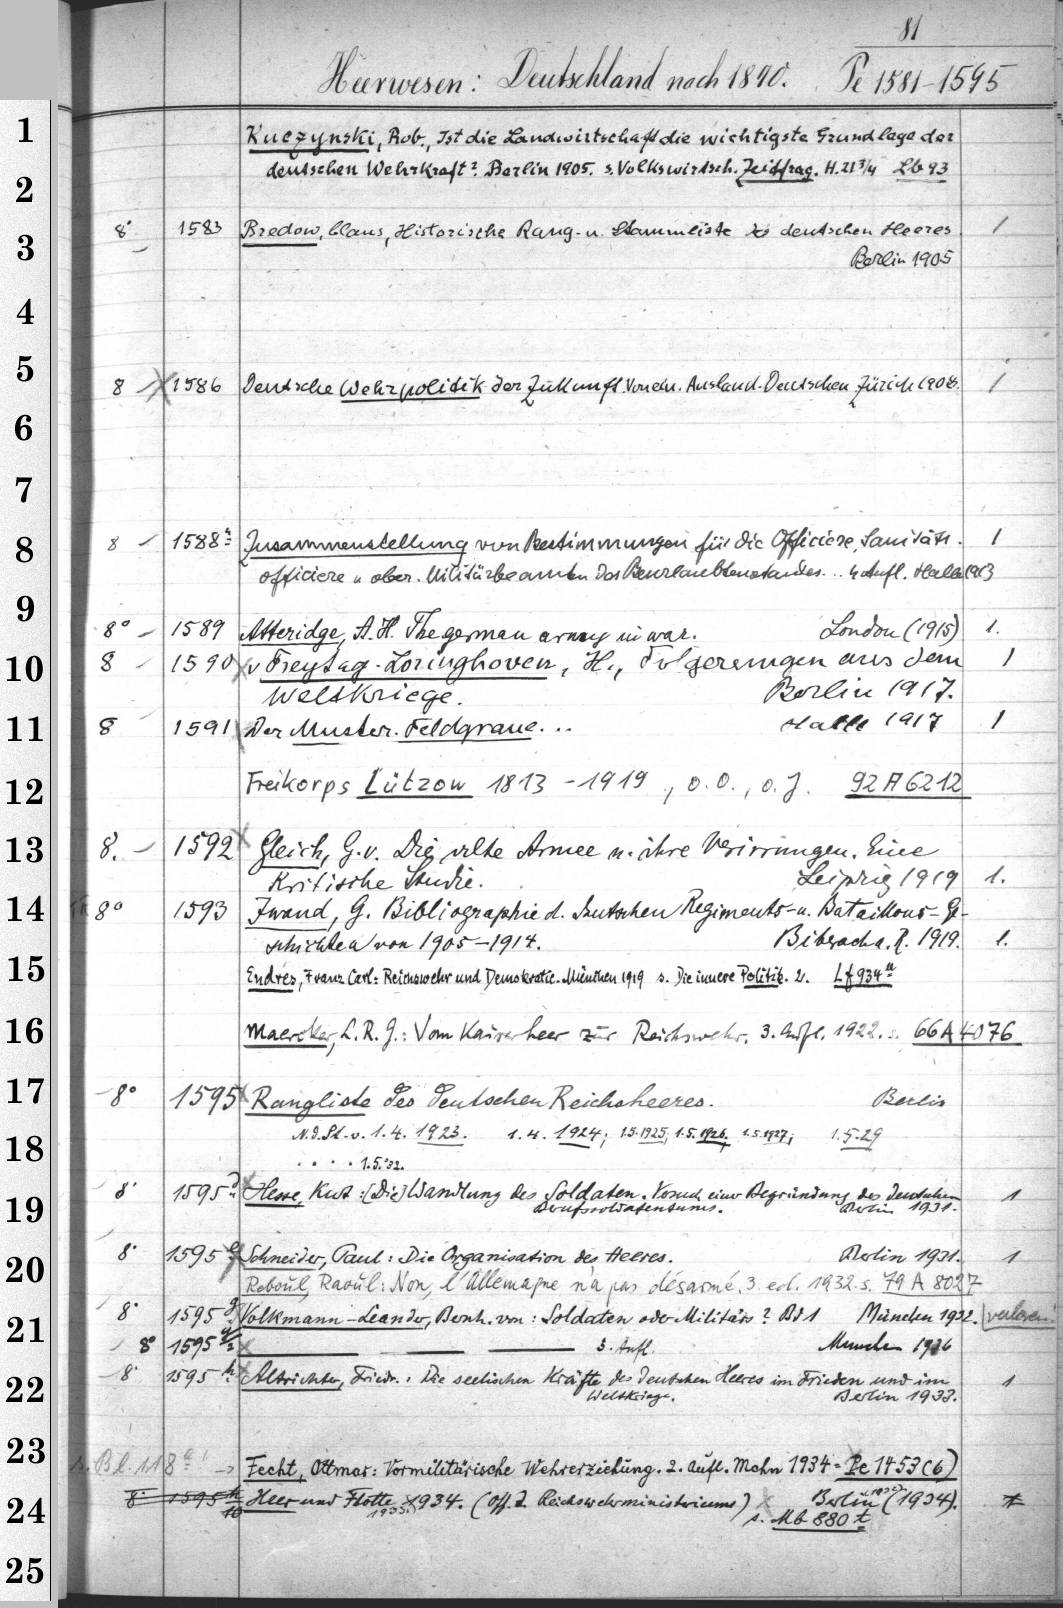 81
Heerwesen: Deutschland nach 1890. Pe 1581-1595
1
Kuczynski, Rob., Ist die Landwirtschaft die wichtigste Grundlage der
deutschen Wehrkraft? Berlin 1905. s. Volkswirtsch. Zeitfrag. H. 213/4 Lb 93
2
8° 1583 Bredow, Claus, Historische Rang- u. Stammliste des deutschen Heeres. 1
3
Berlin 1905
4
5
8 1586 Deutsche Wehrpolitik der Zukunft. Von ein. Ausland-Deutschen. Zürich 1908. 1
6
7
8 8 1588a Zusammenstellung von Bestimmungen für die Officiere, Sanitäts- 1
officiere u. ober. Militärbeamten des Beurlaubtenstandes... 4 Aufl. Halle 1913
9
8° 1589 Atteridge, A. H. The german army in war. London (1915) 1.
10 8 1590 v Freytag-Loringhoven, H., Folgerungen aus dem 1
Weltkriege. Berlin 1917.
11 8 1591 Der Muster-Feldgraue... Halle 1917 1
12 Freikorps Lützow 1813-1919, o.O., o.J. 92 A 6212
13 8. 1592 Gleich, G. v. Die alte Armee u. ihre Verirrungen. Eine
Kritische Studie. Leipzig 1919 1.
14 8° 1593 Zwand, G. Bibliographie d. deutschen Regiments- u. Bataillons-Ge-
schichten von 1905-1914. Biberach a. R. 1919. 1.
15 Endres, Franz Carl: Reichswehr und Demokratie. München 1919 s. Die innere Politik. 2. Lf 934n
16 Maercker, L. R. G.: Vom Kaiserheer zur Reichswehr. 3. Aufl. 1922. s. 66 A 4076
17 8° 1595 Rangliste des deutschen Reichsheeres. Berlin
N. d. St. v. 1.4. 1923. 1.4. 1924; 1.5.1925; 1.5.1926; 1.5.1927; 1.5.29
18 . . . . 1.5.'32.
8° 1595d Hesse, Kurt: [Die] Wandlung des Soldaten. Versuch einer Begründung des deutschen 1
19 Berufssoldatentums. Berlin 1931.
8° 1595e Schneider, Paul: Die Organisation des Heeres. Berlin 1931. 1
20 Reboul, Raoul: Non, l'Allemagne n'a pas désarmé. 3. ed. 1932. s. 79 A 8027
21 8° 1595g Volkmann-Leander, Bernh. von: Soldaten oder Militärs? Bd 1 München 1932. verloren
8° 1595g/2 3. Aufl. München 1936
22 8° 1595h Altrichter, Friedr.: Die seelischen Kräfte des deutschen Heeres im Frieden und im 1
Weltkriege. Berlin 1933.
23 s. Bl. 118a → Fecht, Ottmar: Vormilitärische Wehrerziehung. 2. Aufl. Mchn 1934 = Pe 1453(6)
24 8° 1595 Heer und Flotte 1934. (Off. d. Reichswehrministeriums) Berlin (1934).
1933. s. Mb 880t
25